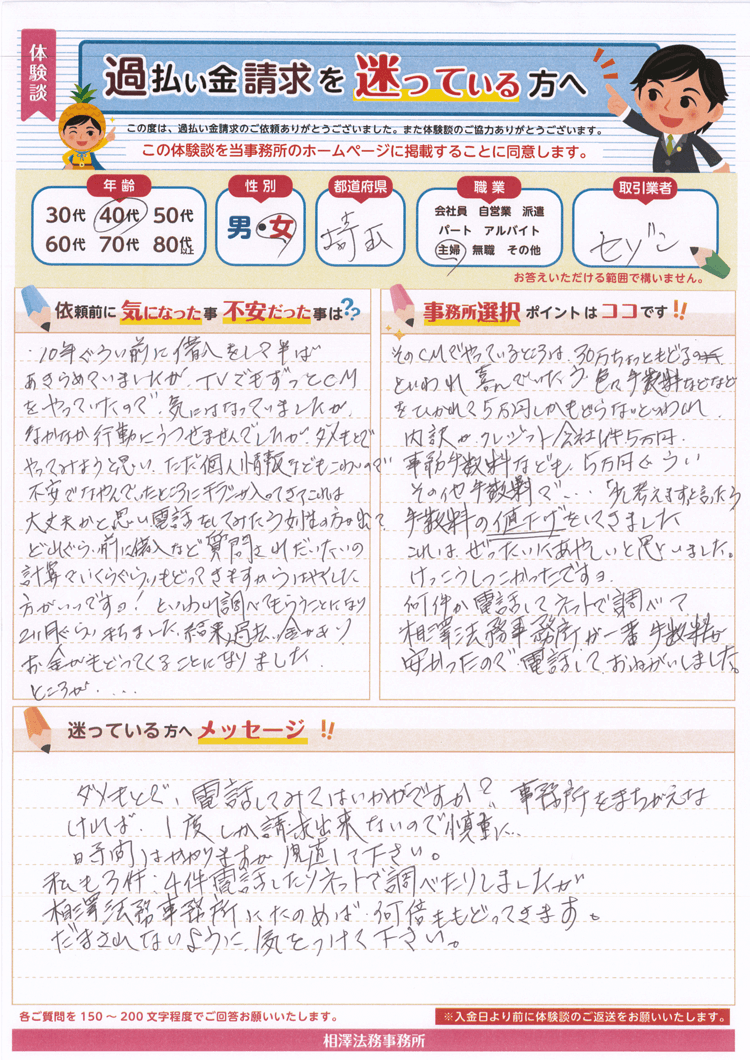 体験談
過払い金請求を 迷っている 方へ
この度は、過払い金請求のご依頼ありがとうございました。また体験談のご協力ありがとうございます。
この体験談を当事務所のホームページに掲載することに同意します。
年齢
30代 40代 50代
60代 70代 80代以上
性別
男・女
都道府県
埼玉
職業
会社員 自営業 派遣
パート アルバイト
主婦 無職 その他
取引業者
セゾン
お答えいただける範囲で構いません。
依頼前に 気になった事 不安だった事は??
10年ぐらい前に借入をして半ば
あきらめていましたが、TVでもずっとCM
をやっていたので、気にはなっていましたが
なかなか行動にうつせませんでしたが、ダメもとで
やってみようと思い、ただ個人情報などもこわいので
不安でなやんでいたところにチラシが入ってきてこれは
大丈夫かと思い電話をしてみたら女性の方が出て
どれぐらい前に借入など質問されだいたいの
計算でいくらぐらいもどってきますからはやくした
方がいいですよ!といわれ調べてもらうことになり
2ヶ月ぐらいまちました。結果、過払い金があり
お金がもどってくることになりました
ところが....
事務所選択 ポイントは ココです!!
そのCMでやっているところは、30万ちょっともどる
といわれ喜んでいたら、色々手数料などなど
をひかれて5万円しかもどらないといわれ
内訳がクレジット会社1件5万円
事務手数料なども5万円ぐらい
その他手数料で...「少し考えます」と言ったら
手数料の値下げをしてきました
これは、ぜったいにあやしいと思いました。
けっこうしつこかったですョ
何件か電話してネットで調べて
相澤法務事務所が一番手数料が
安かったので電話して、おねがいしました。
迷っている方へ メッセージ!!
ダメもとで、電話してみてはいかがですか? 事務所をまちがえな
ければ、1度しか請求出来ないので慎重に..
時間はかかりますが見直して下さい。
私も3件、4件電話したりネットで調べたりしましたが
相澤法務事務所にたのめば何倍ももどってきます。
だまされないように、気をつけて下さい。
各ご質問を150~200文字程度でご回答お願いいたします。
※入金日より前に体験談のご返送をお願いいたします。
相澤法務事務所